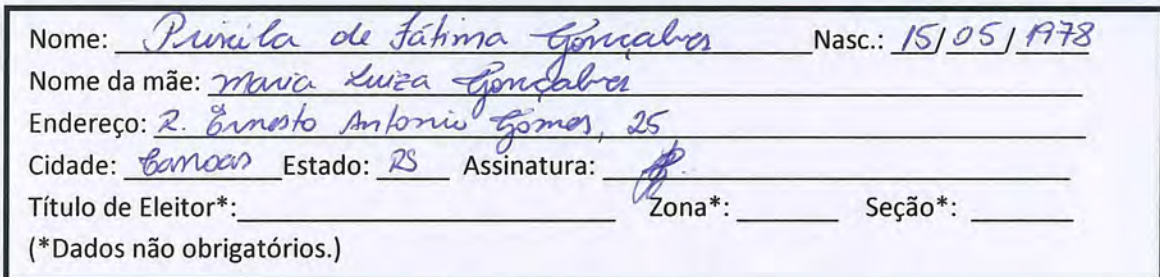 Nome: Priscila de Fátima Gonçalves Nasc.: 15/05/1978
Nome da mãe: Maria Luiza Gonçalves
Endereço: R. Ernesto Antonio Gomes, 25
Cidade: Canoas Estado: RS Assinatura:
Título de Eleitor*: Zona*: Seção*:
(*Dados não obrigatórios.)